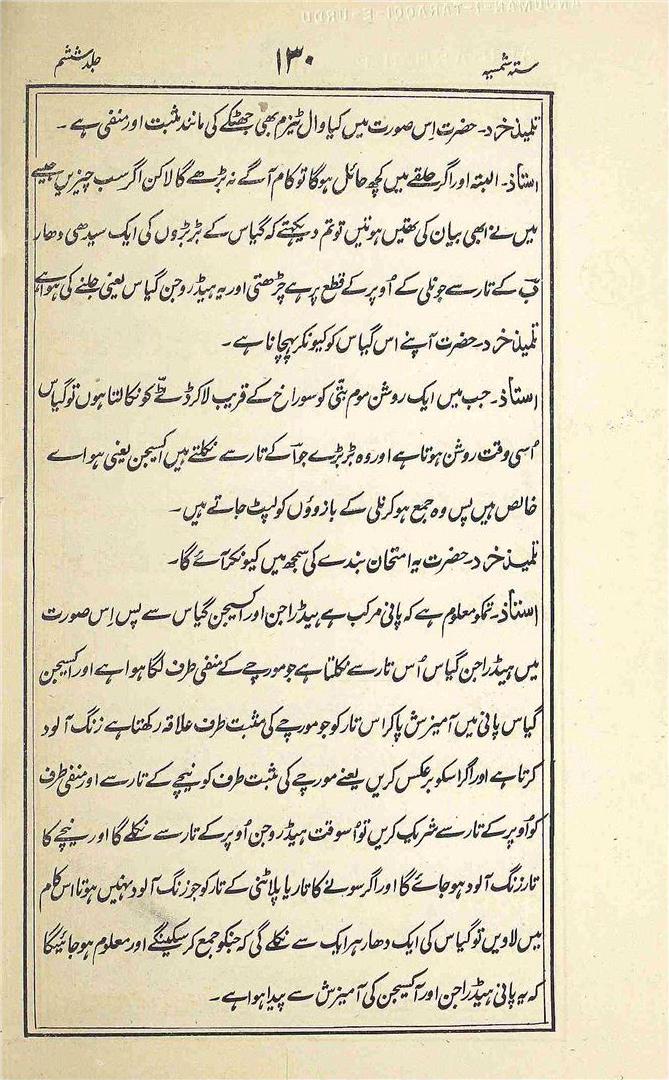 ستہ شمسیہ ۱۳۰ جلد ششم
تلمیذ خرد۔ حضرت اِس صورت میں کیا وال ٹیزم بھی جھٹکے کی مانند مثبت اور منفی ہے۔
استاذ۔ البتہ اور اگر حلقے میں کچھ حائل ہوگا تو کام آگے نہ بڑھے گا لاکن اگر سب چیزیں جیسے
میں نے ابھی بیان کی تھیں ہوئیں تو تم دیکھتے کہ گیاس کے بڑبڑوں کی ایک سیدھی دھار
بَ کے تار سے جو نلی کے اُوپر کے قطع پر ہے چڑھتی اور یہ ہیڈروجن گیاس یعنی جلنے کی ہوا ہے
تلمیذ خرد۔ حضرت آپنے اس گیاس کو کیونکر پہچانا ہے۔
استاذ۔ جب میں ایک روشن موم بتّی کو سوراخ کے قریب لاکر ڈٹّے کو نکالتا ہوں تو گیاس
اُسی وقت روشن ہوتا ہے اور وہ بڑبڑے جو آ کے تار سے نکلتے ہیں اکسیجن یعنی ہواے
خالص ہیں پس وہ جمع ہوکر نلی کے بازوؤں کو لپٹ جاتے ہیں۔
تلمیذ خرد۔ حضرت یہ امتحان بندے کی سمجھ میں کیونکر آئے گا۔
استاذ۔ تمکو معلوم ہے کہ پانی مرکب ہے ہیڈراجن اور اکسیجن گیاس سے پس اِس صورت
میں ہیڈراجن گیاس اُس تار سے نکلتا ہے جو مورچے کے منفی طرف لگا ہوا ہے اور اکسیجن
گیاس پانی میں آمیزش پاکر اس تار کو جو مورچے کی مثبت طرف علاقہ رکھتا ہے زنگ آلود
کرتا ہے اور اگر اسکو برعکس کریں یعنے مورچے کی مثبت طرف کو نیچے کے تار سے اور منفی طرف
کو اُوپر کے تار سے شریک کریں تو اُسوقت ہیڈروجن اُوپر کے تار سے نکلے گا اور نیچے کا
تار زنگ آلود ہو جائے گا اور اگر سونے کا تار یا پلاٹنی کے تار کو جو زنگ آلود نہیں ہوتا اس کام
میں لاویں تو گیاس کی ایک دھار ہر ایک سے نکلے گی کہ جنکو جمع کر سکینگے اور معلوم ہو جائیگا
کہ یہ پانی ہیڈراجن اور آکسیجن کی آمیزش سے پیدا ہوا ہے۔